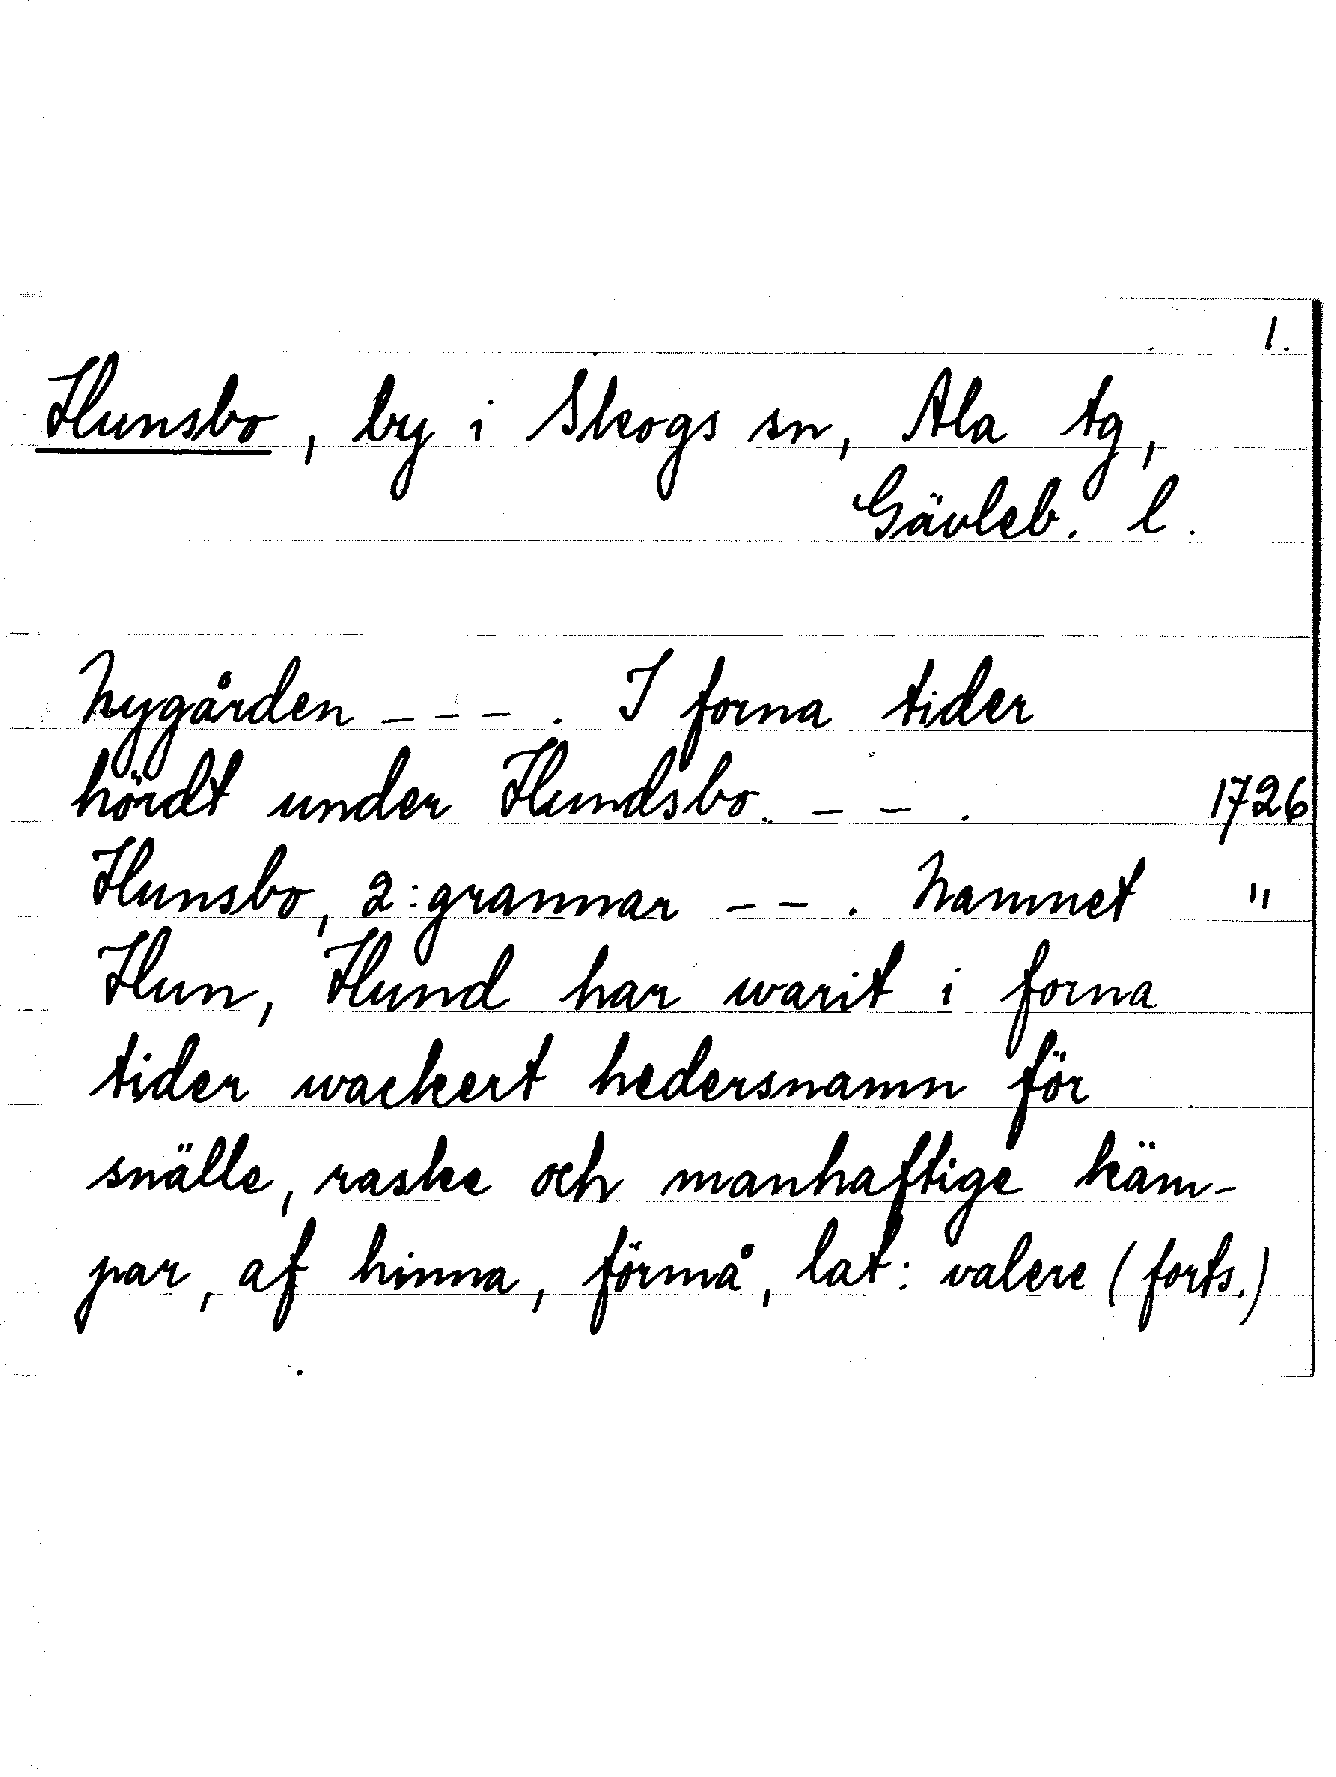 1.
Hunsbo, by i Skogs sn, Ala tg,
Gävleb. l.
Nygården - - - . I forna tider
hördt under Hundsbo. - - . 1726
Hunsbo, 2:grannar - - . Namnet "
Hun, Hund har warit i forna
tider wackert hedersnamn för
snälle, raske och manhaftige käm-
par, af hinna, förmå, lat: valere (forts.)